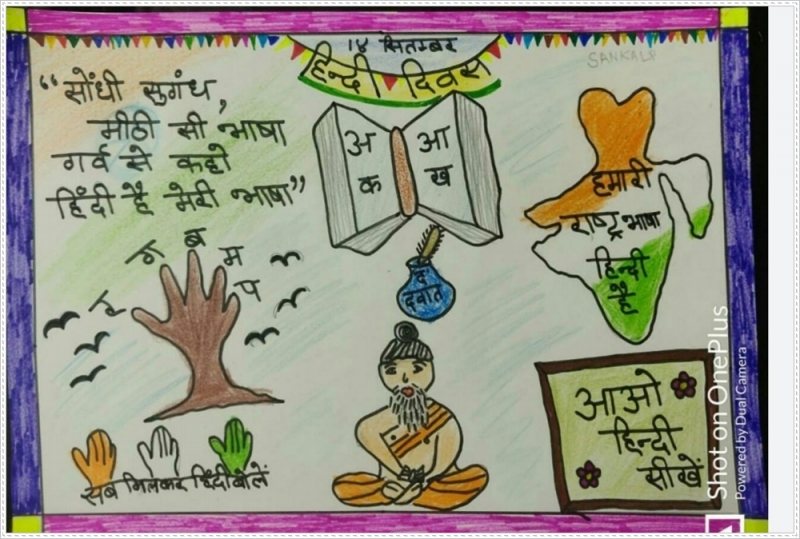 १४ सितम्बर
हिन्दी दिवस
SANKALP
“सोंधी सुगंध,
मीठी सी भाषा
गर्व से कहो
हिंदी है मेरी भाषा”
अ आ
क ख
द
दवात
हमारी
राष्ट्र भाषा
हिन्दी
है
ब म
प
आओ
हिन्दी
सीखें
सब मिलकर हिंदी बोलें
Shot on OnePlus
Powered by Dual Camera